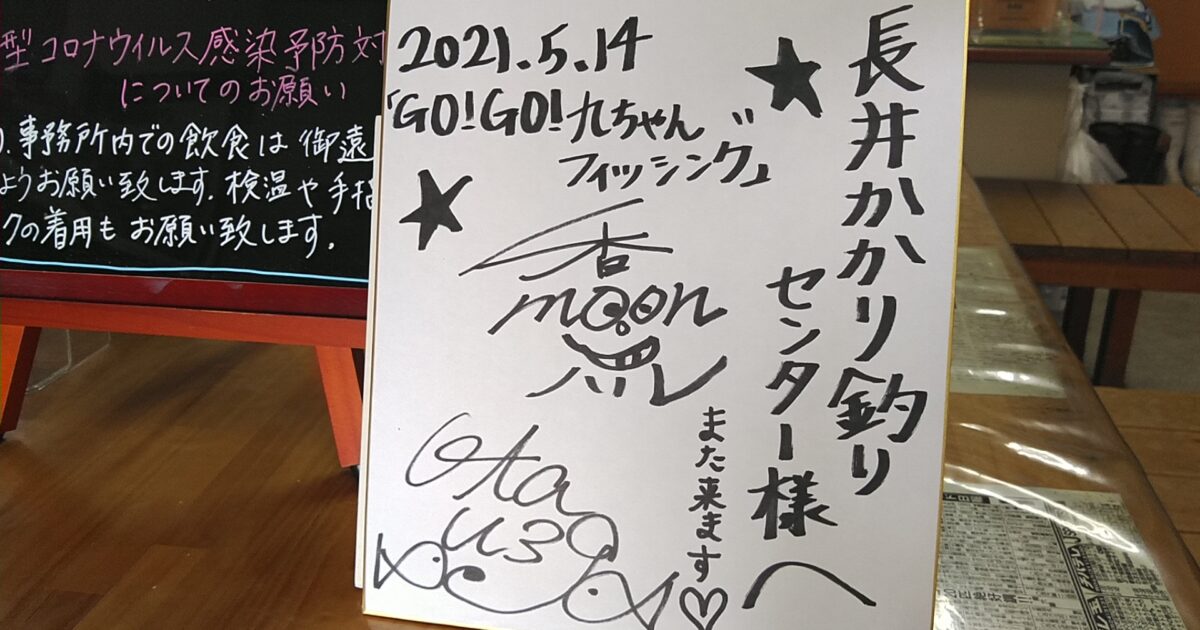 型コロナウイルス感染予防対
についてのお願い
事務所内での飲食は御遠
ようお願い致します。検温や手指
クの着用もお願い致します。
長井かかり釣り
センター様へ
2021.5.14
「GO!GO!九ちゃん
フィッシング」
杏
moon
また来ます♡
Ota